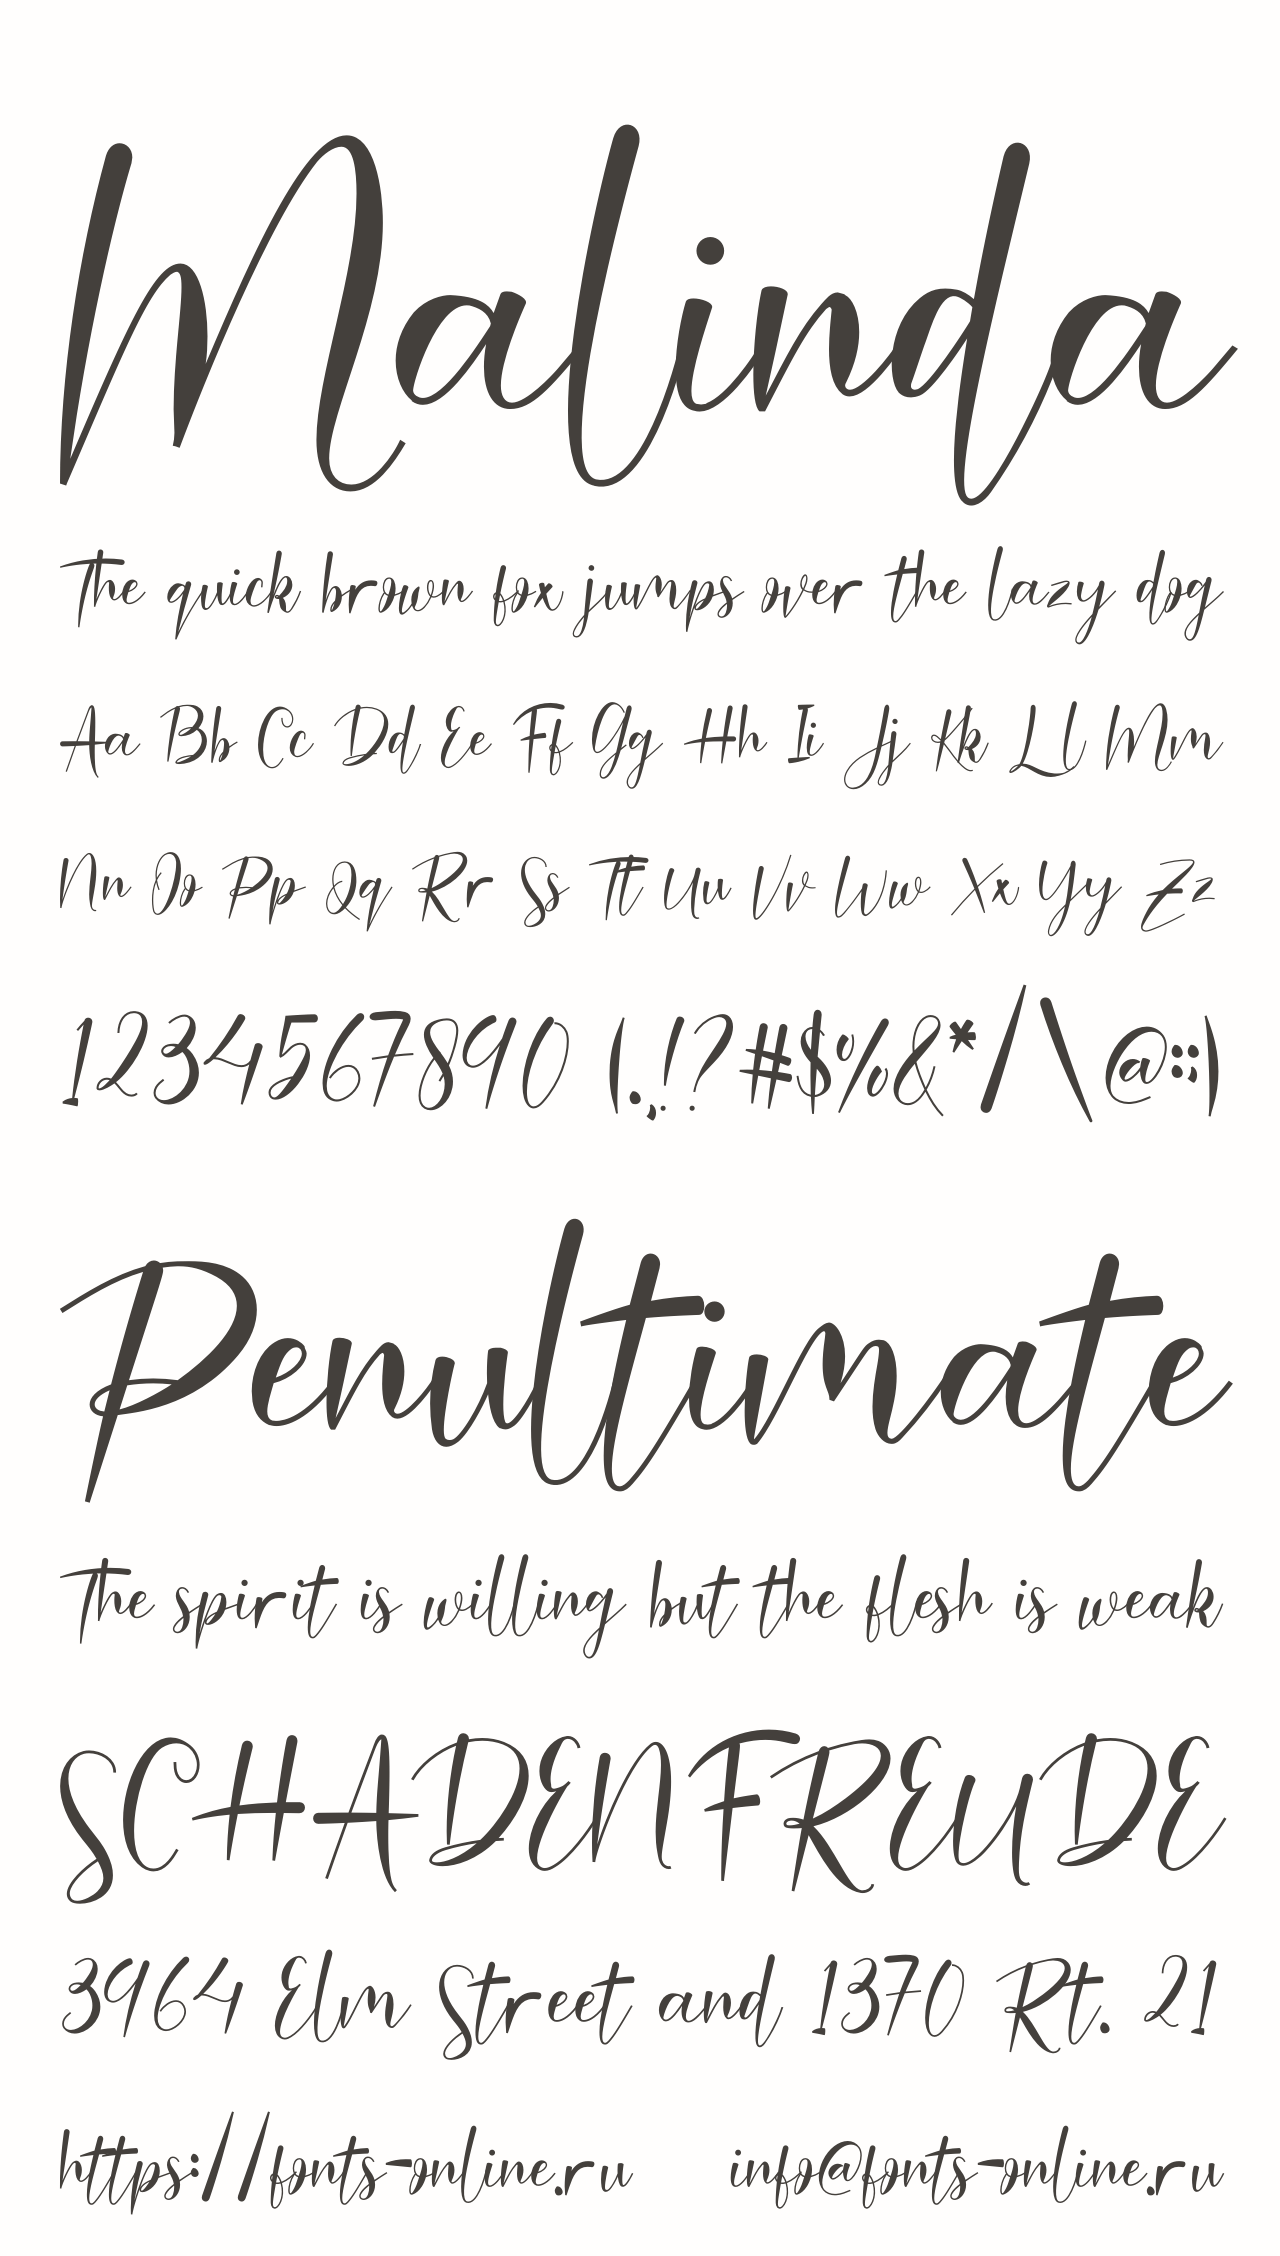 Malinda
The quick brown fox jumps over the lazy dog
Aa Bb Cc Dd Ee Ff Gg Hh Ii Jj Kk Ll Mm
Nn Oo Pp Qq Rr Ss Tt Uu Vv Ww Xx Yy Zz
1234567890 (.,!?#$%&*/\@:;)
Penultimate
The spirit is willing but the flesh is weak
SCHADENFREUDE
3964 Elm Street and 1370 Rt. 21
https://fonts-online.ru info@fonts-online.ru